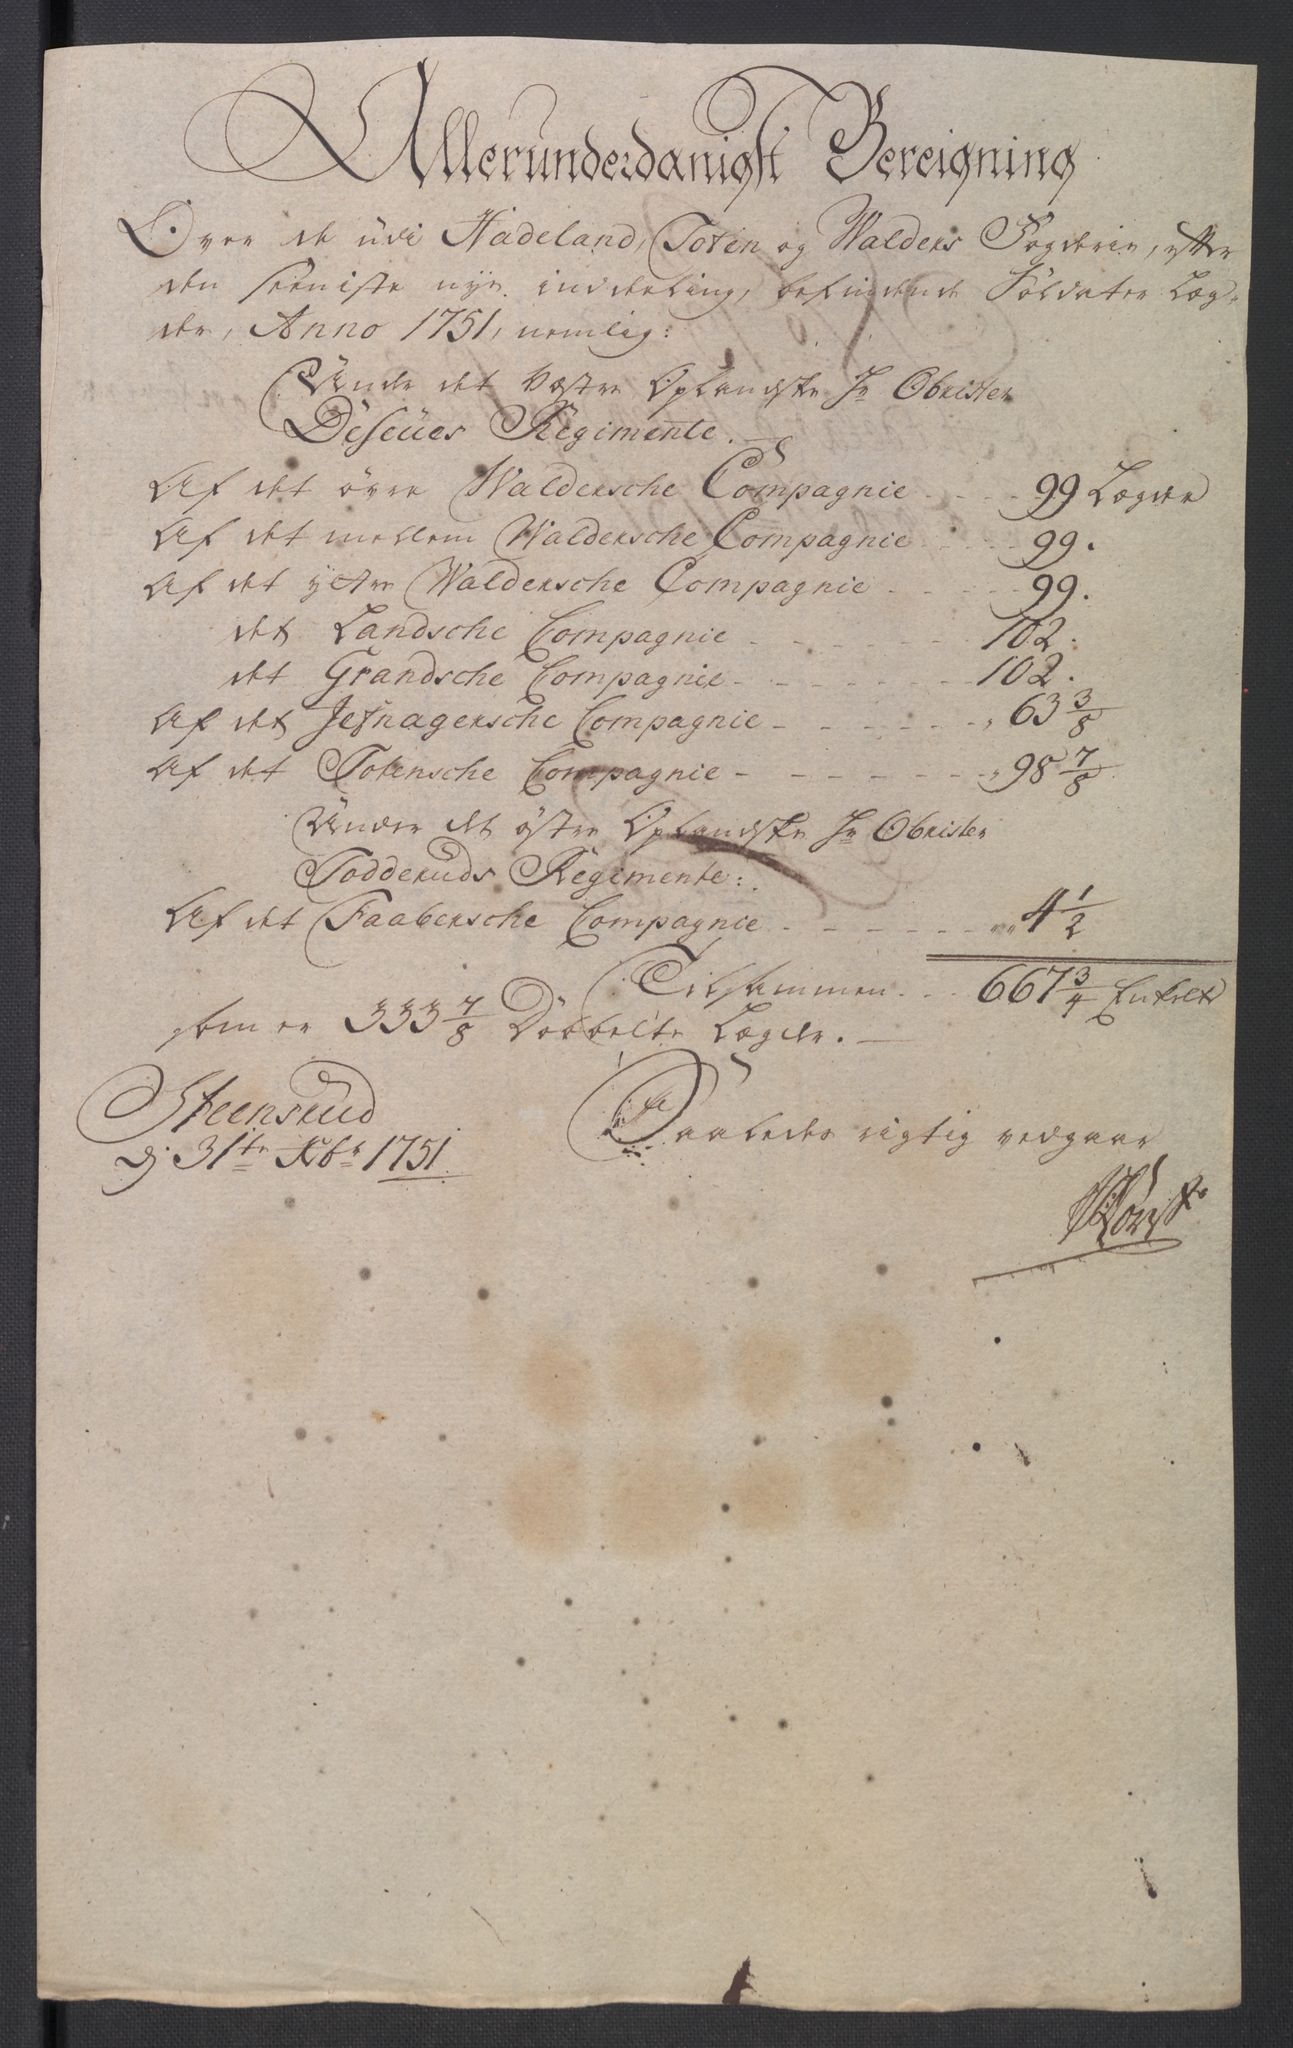 Allerunderdanigst Bereigning
Over de udi Hadeland, Toten og Walders Fogderie, efter
den seeniste nye inddeeling, befindende Soldater Læg-
der, Anno 1751, nemlig:
Under det Vestre Oplandske Hr Obrister
Deseües Regimente.
Af det øvre Waldersche Compagnie - - - 99 Lægder
Af det mellem Waldersche Compagnie - - - 99.
Af det ytre Waldersche Compagnie - - - 99.
det Landsche Compagnie - - - 102.
det Grandsche Compagnie - - - 102.
Af det Jefnagersche Compagnie - - - 63 3/8
Af det Totensche Compagnie - - - 98 7/8
Under det østre Oplandske Hr Obrister
Todderuds Regimente:
Af det Faabersche Compagnie - - - 4 1/2
Tilsammen - - 667 3/4 Enkelte
som er 333 7/8 Dobbelte Lægder.
Steensrud
d. 31te Xbr 1751.
Saaledes rigtig vedgaar